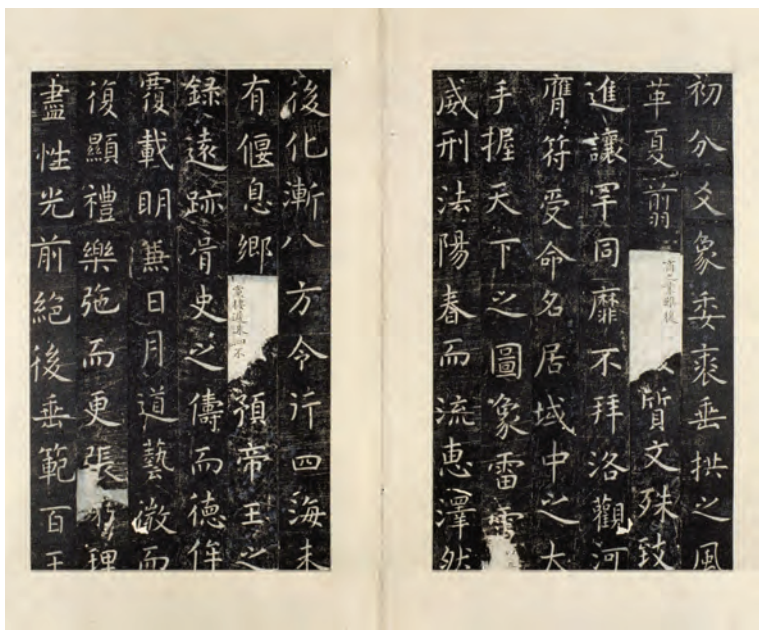 初分爻象委裘垂拱之風
革夏翦商之業雖復質文殊致
進讓罕同靡不拜洛觀河
膺符受命名居域中之大
手握天下之圖象雷電
威刑法陽春而流惠澤然
後化漸八方令行四海未
有偃息鄉黨棲遲洙泗不預帝王之
錄遠跡胥史之儔而德侔
覆載明兼日月道藝微而
復顯禮樂弛而更張窮理
盡性光前絕後垂範百王